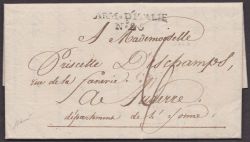 ARM. D'ITALIE
N° 26
A Mademoiselle
Pricette Deschamps,
rue de la
a Auxerre.
département de l'Yonne